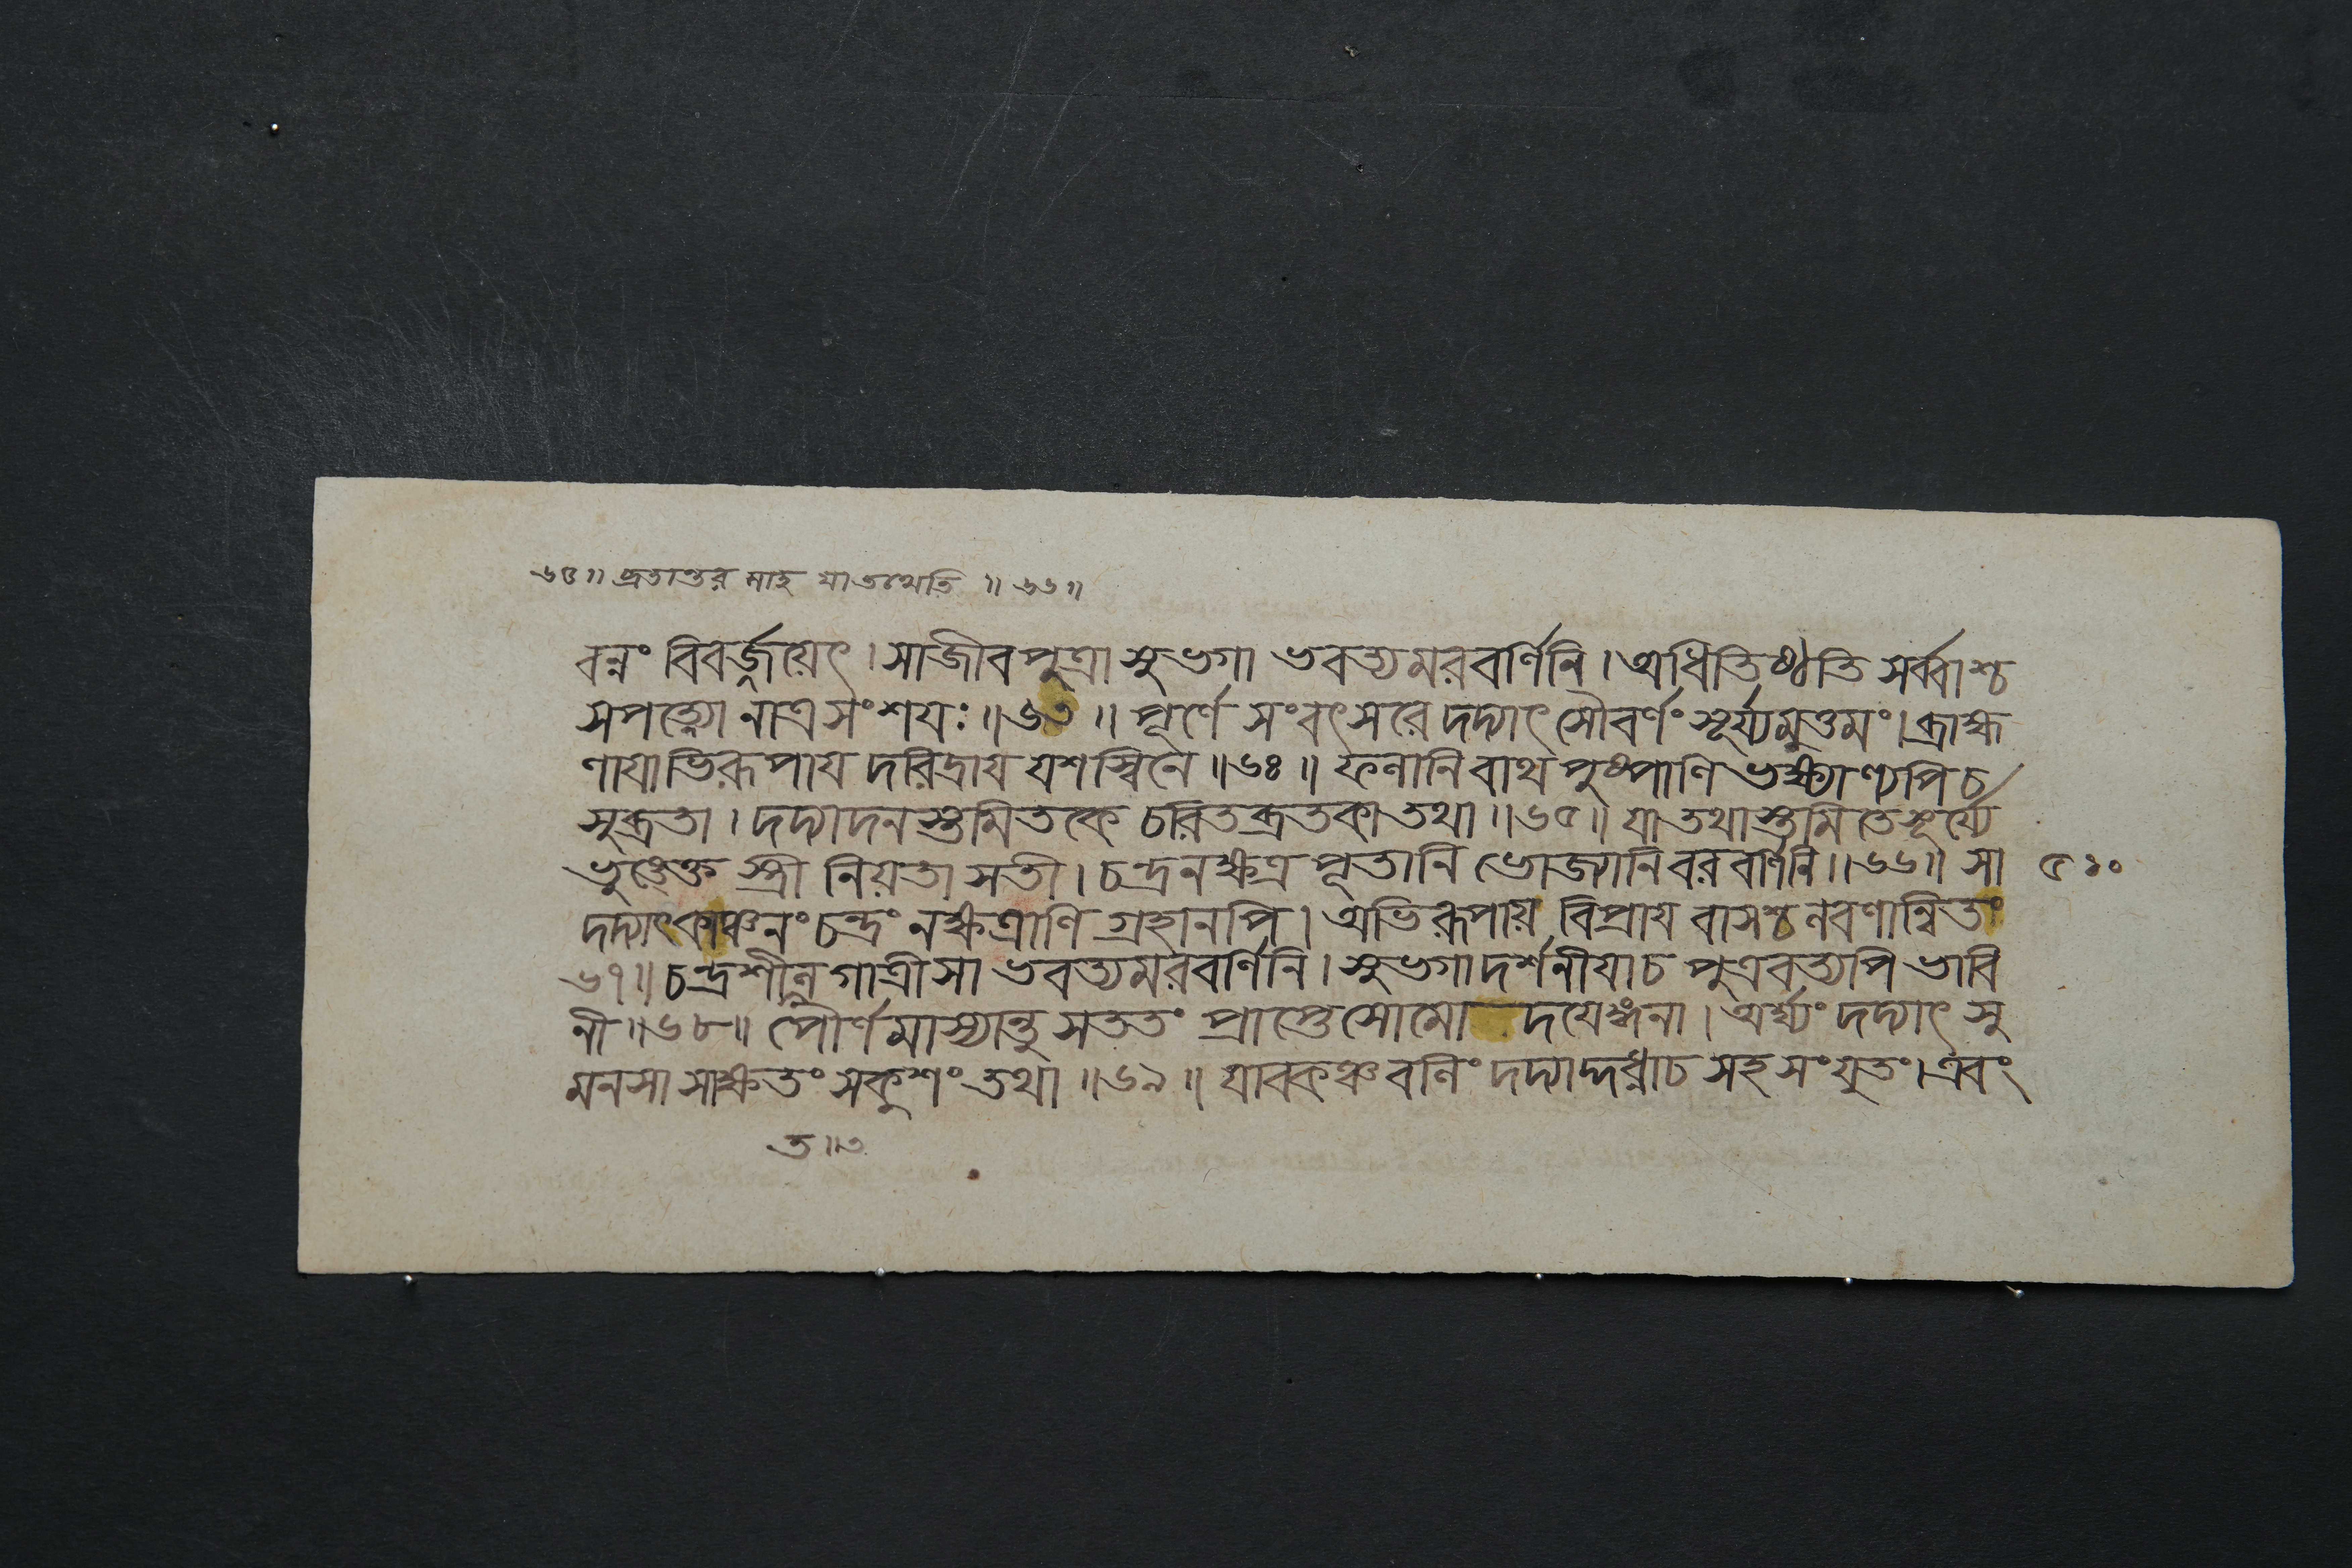 ৬৫॥ ব্রতান্তর মাহ যাতথেতি ॥৬৬॥
বন্নং বিবর্জ্জয়েৎ।সাজীবপুত্রা সুভগা ভবত্যমরবর্ণিনি।অধিতিষ্ঠতি সর্ব্বাশ্চ
সপত্ন্যো নাত্রসংশযঃ॥৬৩॥ পূর্ণে সংবৎসরে দদ্যাৎ সৌবর্ণং সূর্য্যমুত্তমং।ব্রাহ্ম
ণাযাভিরূপায দরিদ্রায যশস্বিনে॥৬৪॥ ফলানি বাথ পুষ্পাণি ভক্ষ্যাণ্যপি চ
সুব্রতা। দদ্যাদনস্তমিতকে চরিতব্রতকা তথা॥৬৫॥ যা তথাস্তমিতে সূর্য্যে
ভুঙেক্ত স্ত্রী নিয়তা সতী। চন্দ্রনক্ষত্র পূতানি ভোজ্যানি বরবর্ণিনি॥৬৬॥ সা ৫১০
দদ্যাৎ কাঞ্চনং চন্দ্রং নক্ষত্রাণি গ্রহানপি। অভিরূপায় বিপ্রায বাসশ্চ লবণান্বিতং
৬৭॥ চন্দ্রশীলগাত্রী সা ভবত্যমরবর্ণিনি। সুভগা দর্শনীযা চ পুত্রবত্যপি ভাবি
নী॥৬৮॥ পৌর্ণমাস্যান্তু সততং প্রাপ্তে সোমো দযেঙ্গনা। অর্ঘ্যং দদ্যাৎ সু
মনসা সাক্ষতং সকুশং তথা॥৬৯॥ যাবকঞ্চ বলিং দদ্যাদ্দধ্নাচ সহ সংযুতং।এবং
ত॥৩